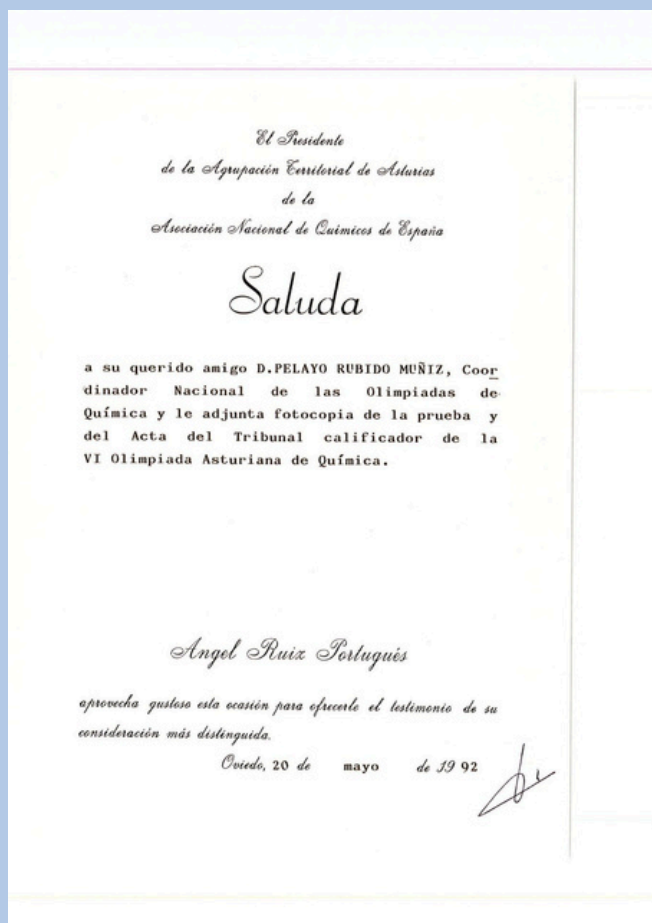 El Presidente
de la Agrupación Territorial de Asturias
de la
Asociación Nacional de Químicos de España
Saluda
a su querido amigo D.PELAYO RUBIDO MUÑIZ, Coor
dinador Nacional de las Olimpiadas de
Química y le adjunta fotocopia de la prueba y
del Acta del Tribunal calificador de la
VI Olimpiada Asturiana de Química.
Angel Ruiz Portugués
aprovecha gustoso esta ocasión para ofrecerle el testimonio de su
consideración más distinguida.
Oviedo, 20 de mayo de 19 92